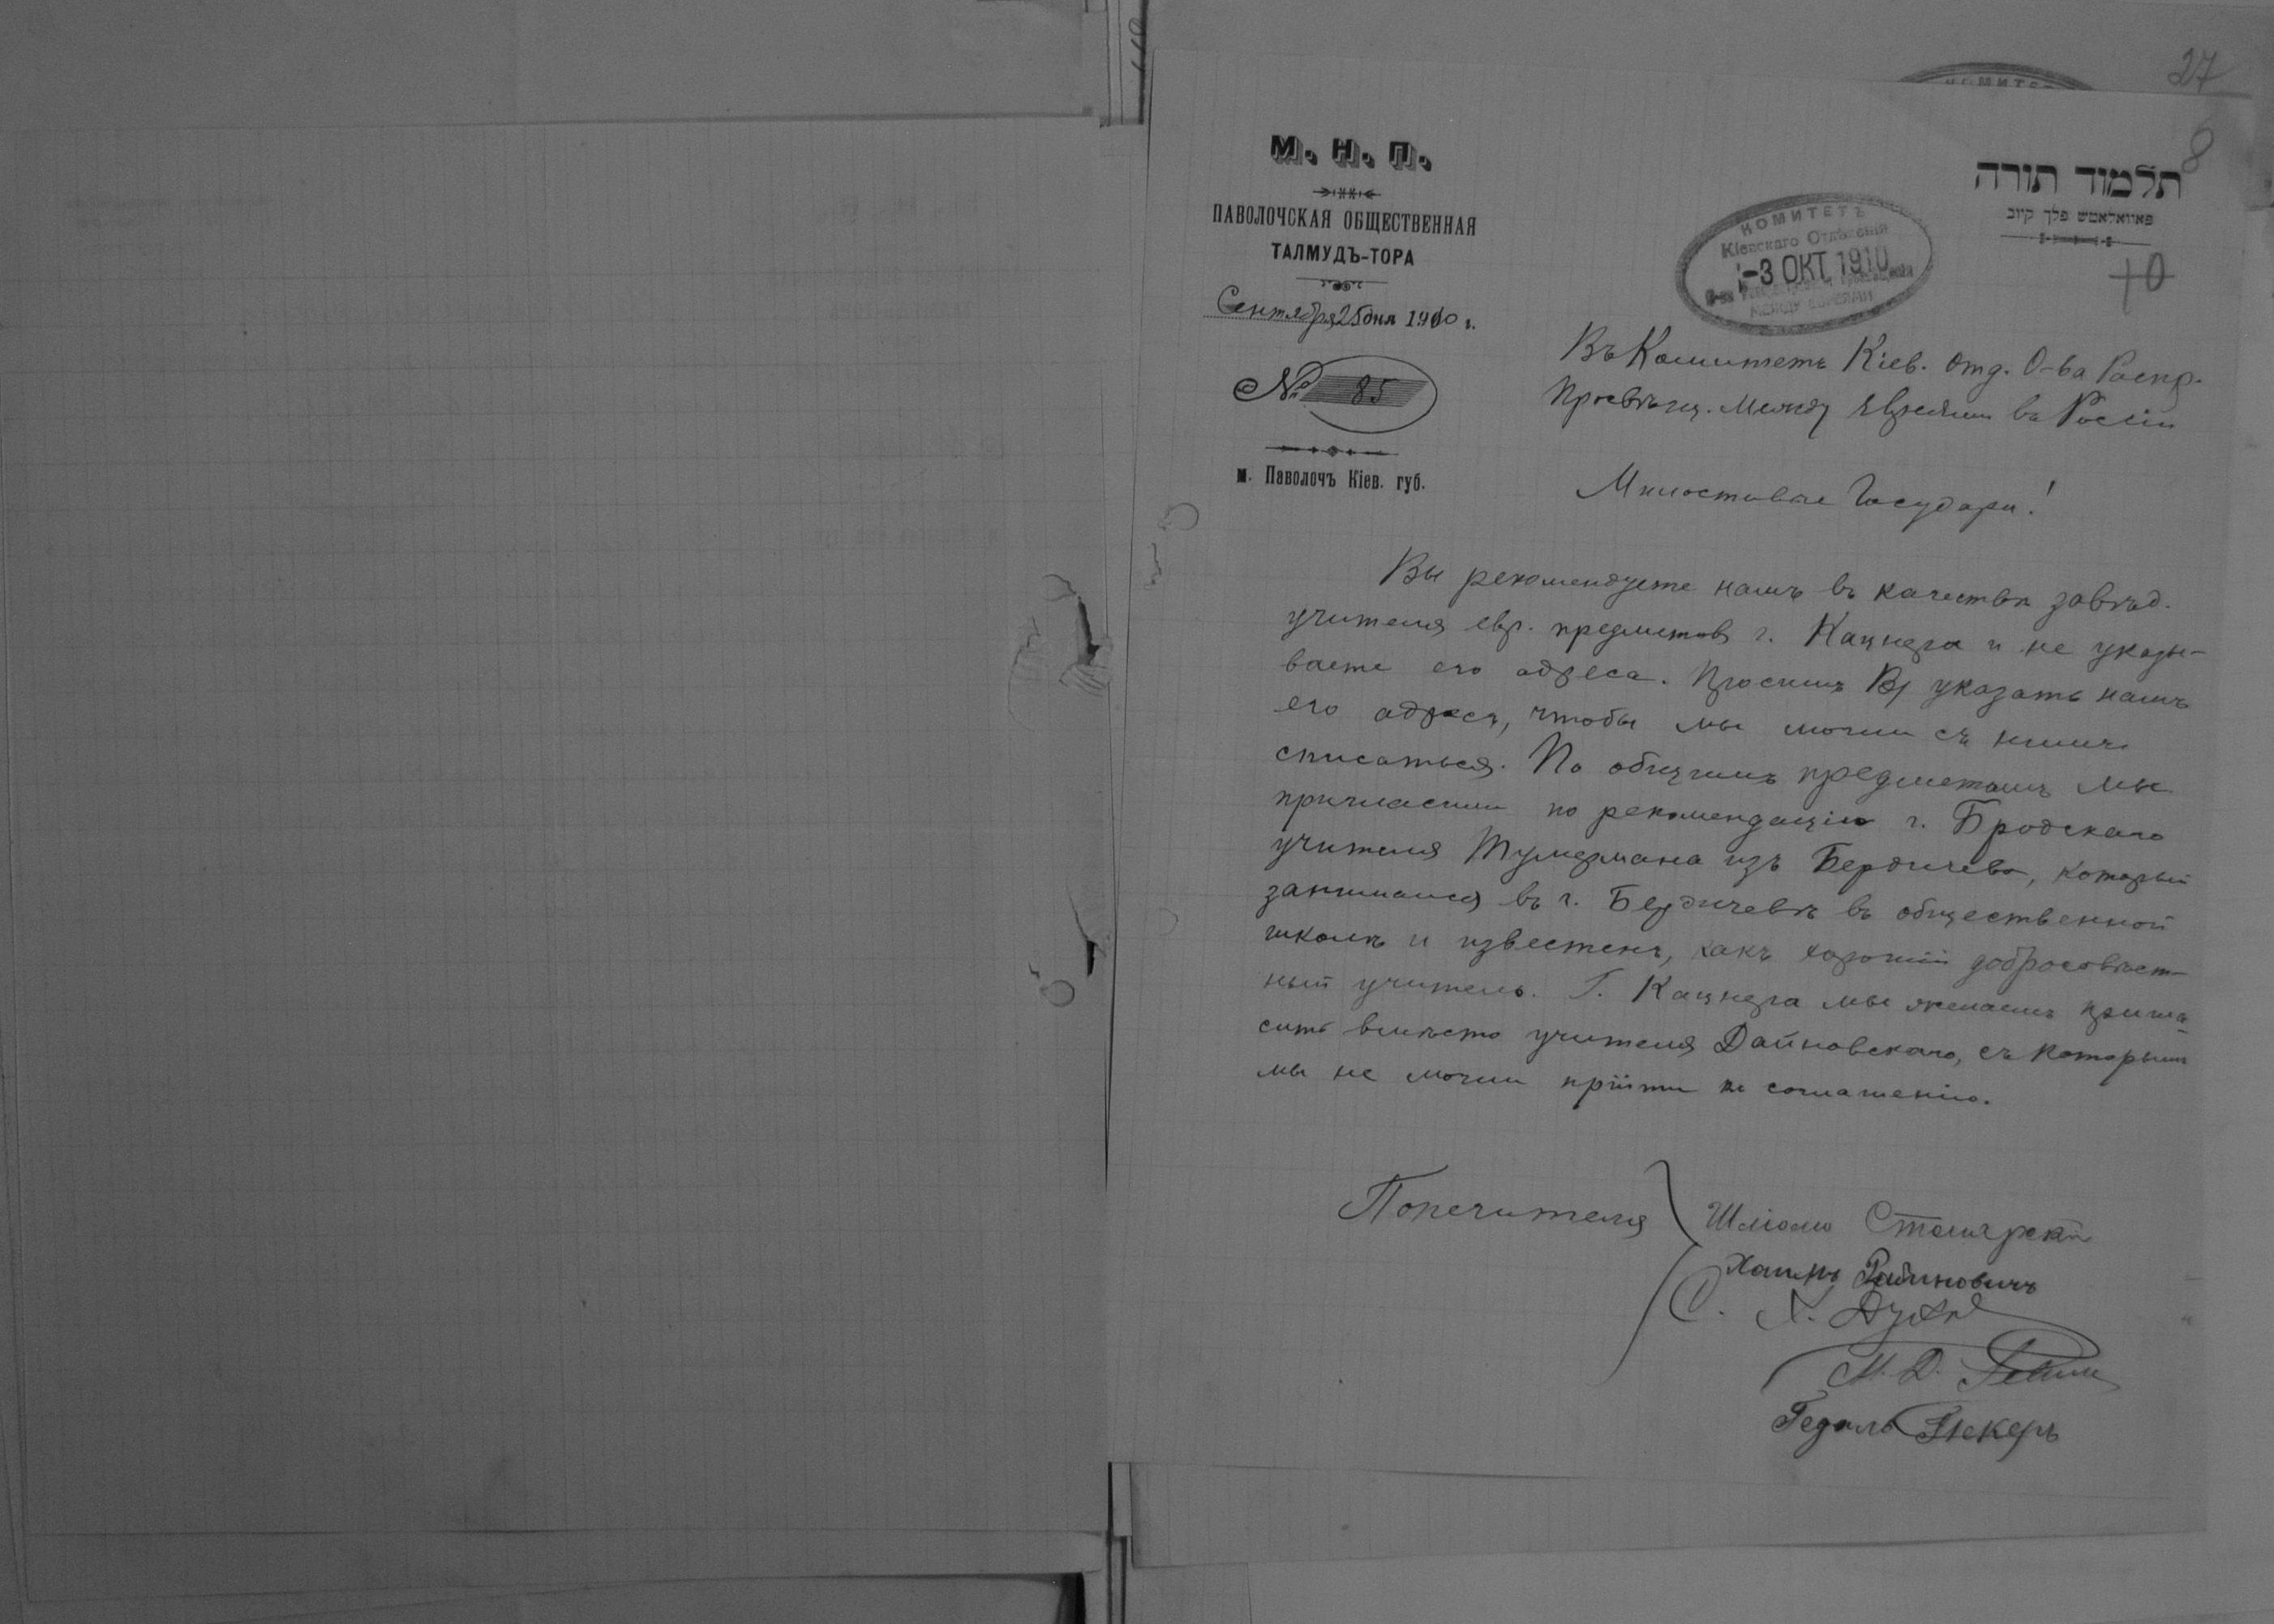 27
8
М. Н. П.
ПАВОЛОЧСКАЯ ОБЩЕСТВЕННАЯ
ТАЛМУДЪ-ТОРА
Сентября 25 дня 1910 г.
№ 85
м. Паволочъ Кіев. губ.
תלמוד תורה
פאוואלאטש פלך קיוב
КОМИТЕТЪ
Кіевскаго Отдѣленія
-3 ОКТ 1910
МЕЖДУ ЕВРЕЯМИ
Въ Комитетъ Кіев. отд. О-ва Распр.
Просвѣщ. Между Евреями въ Росіи
Милостивые Государи!
Вы рекомендуете намъ въ качествѣ завѣд.
учителя евр. предметовъ г. Кацнера и не указы-
ваете его адреса. Просимъ Вы указать намъ
его адресъ, чтобы мы могли съ нимъ
списаться. По общимъ предметамъ мы
пригласили по рекомендаціи г. Бродскаго
учителя Тумермана изъ Бердичева, который
занимался въ г. Бердичевѣ въ общественной
школѣ и известенъ, какъ хорошій добросовѣст-
ный учитель. Г. Кацнера мы желаемъ пригла-
сить вмѣсто учителя Дайновскаго, съ которымъ
мы не могли прійти къ соглашенію.
Попечителя
Шліомо Столярскій
Хаимъ Рабиновичъ
С. Х.
М. Д.
Гедаль